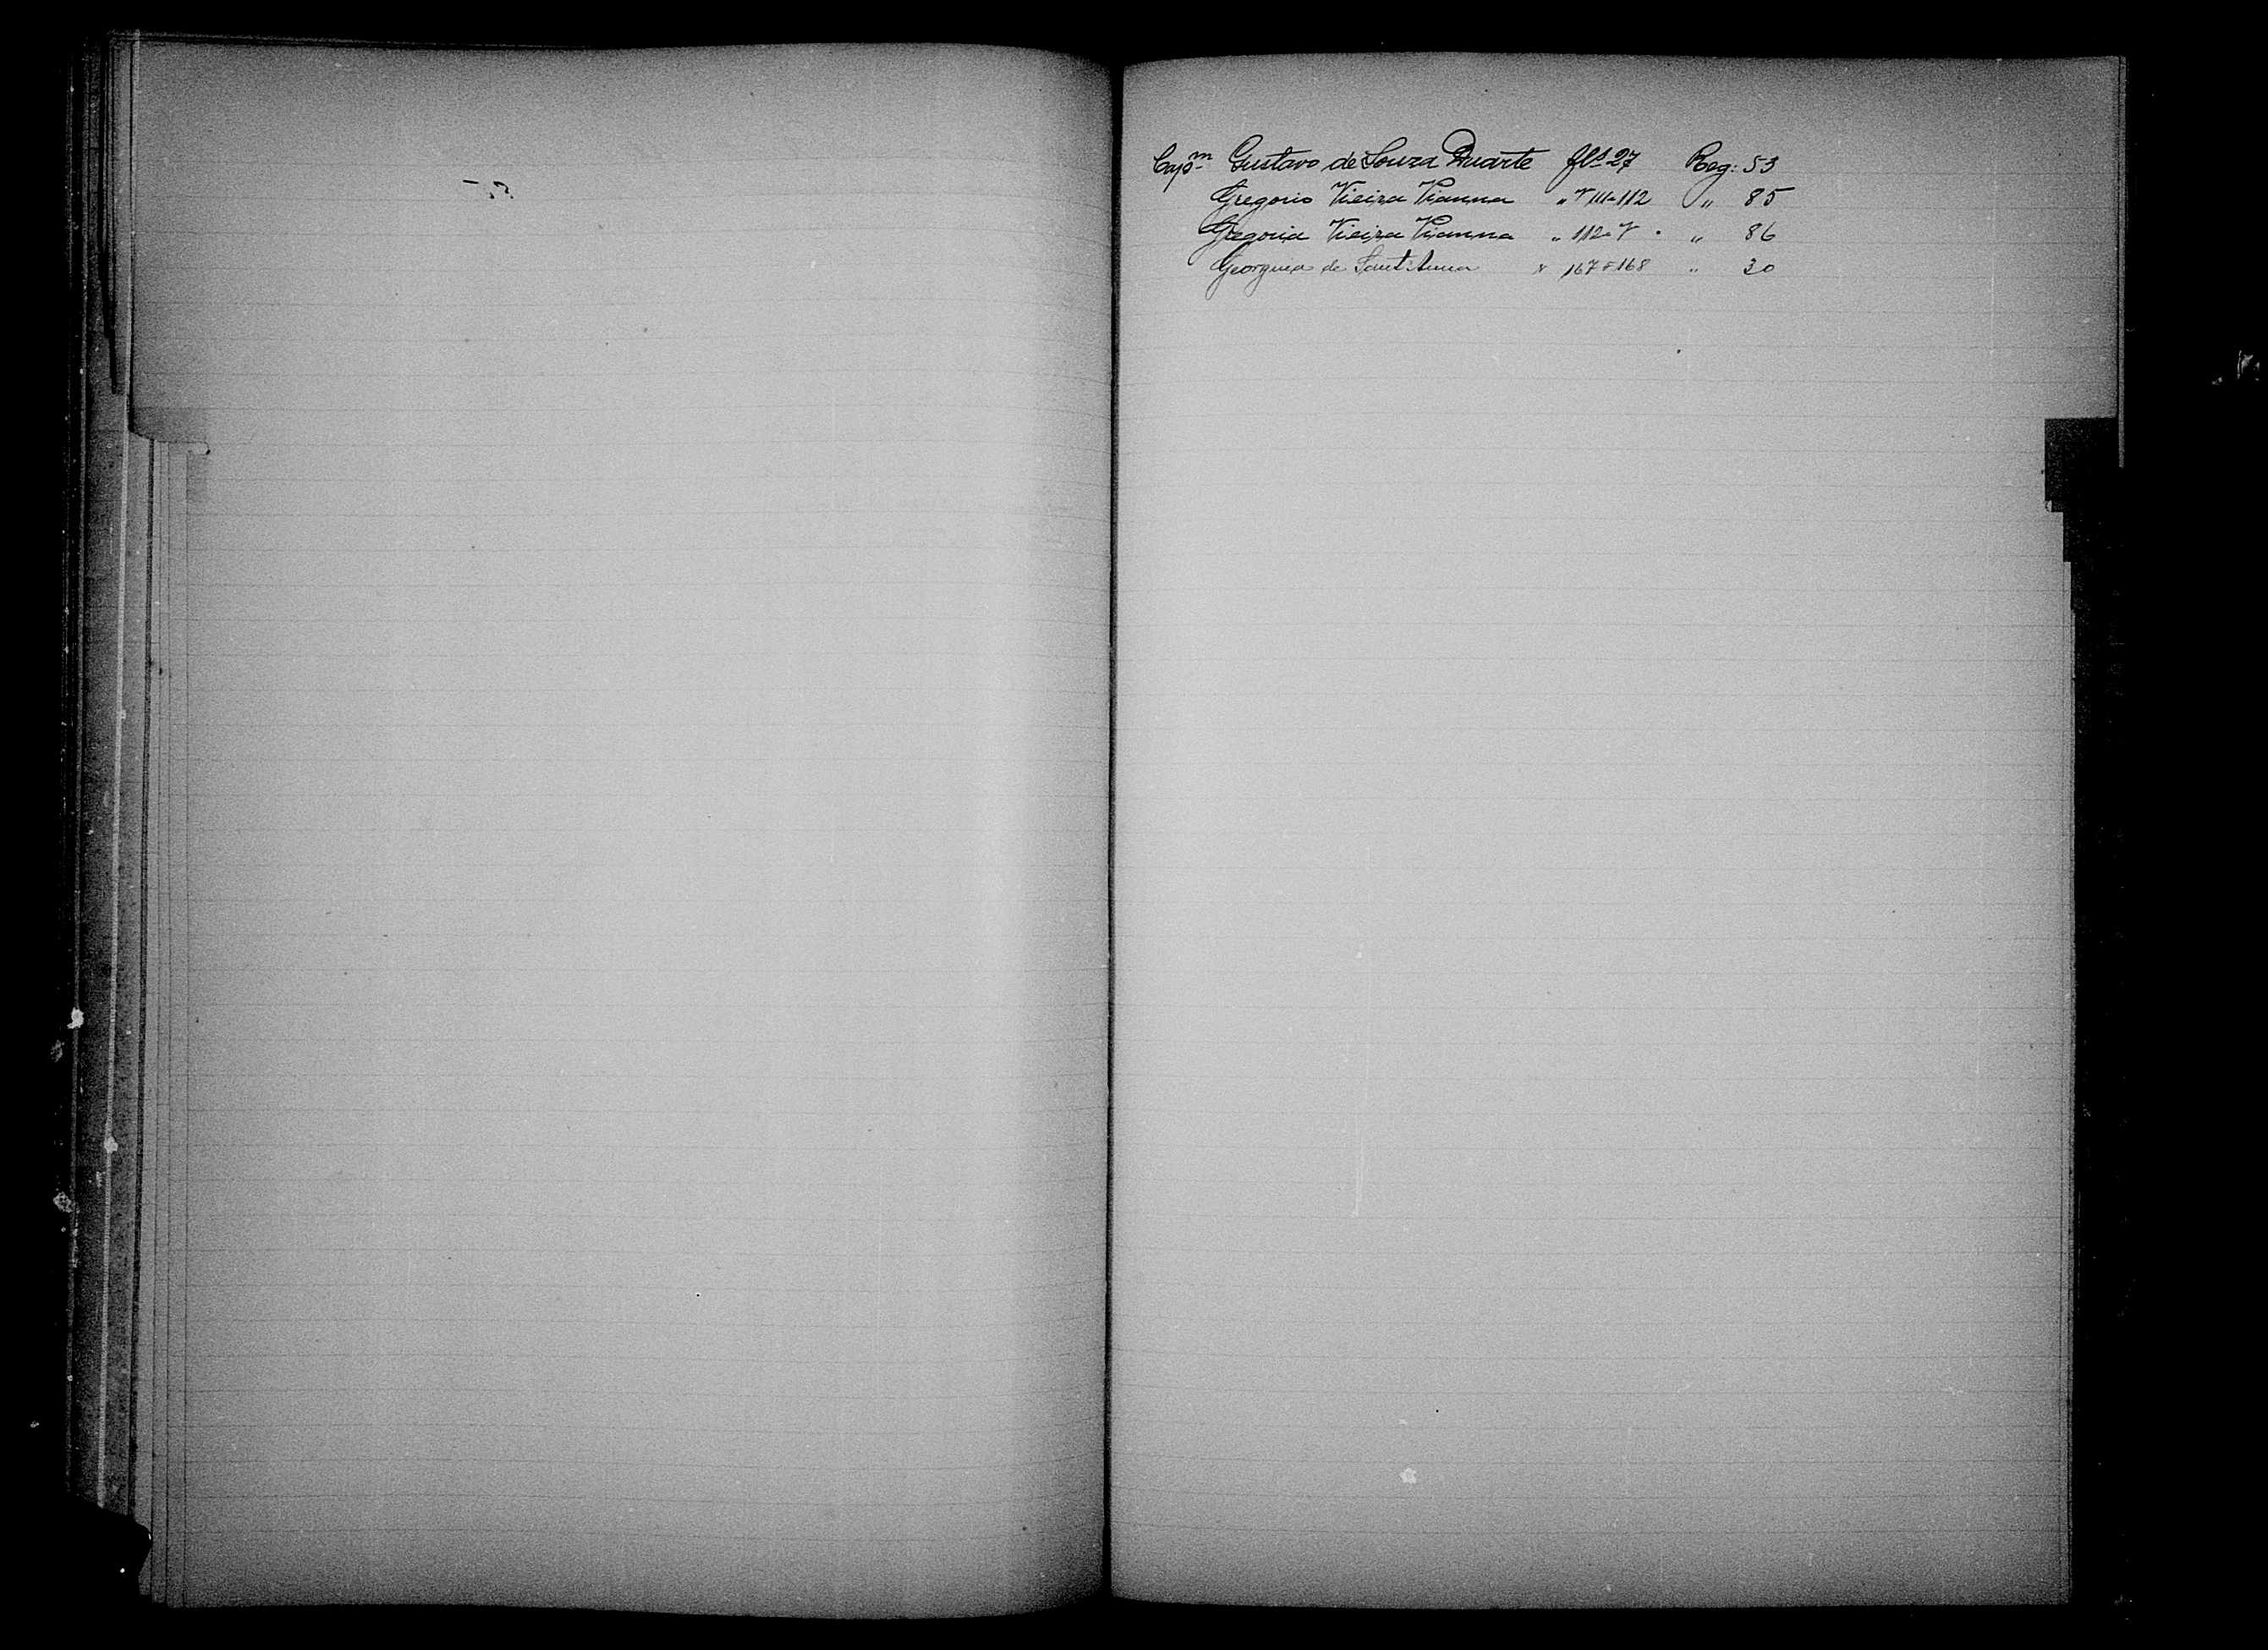 Capm Gustavo de Souza Duarte fls 27 Reg: 53
Gregorio Vieira Vianna " v 111-112 " 85
Gregoria Vieira Vianna " 112-v " 86
Georgina de Sant'Anna " 167 v 168 " 30